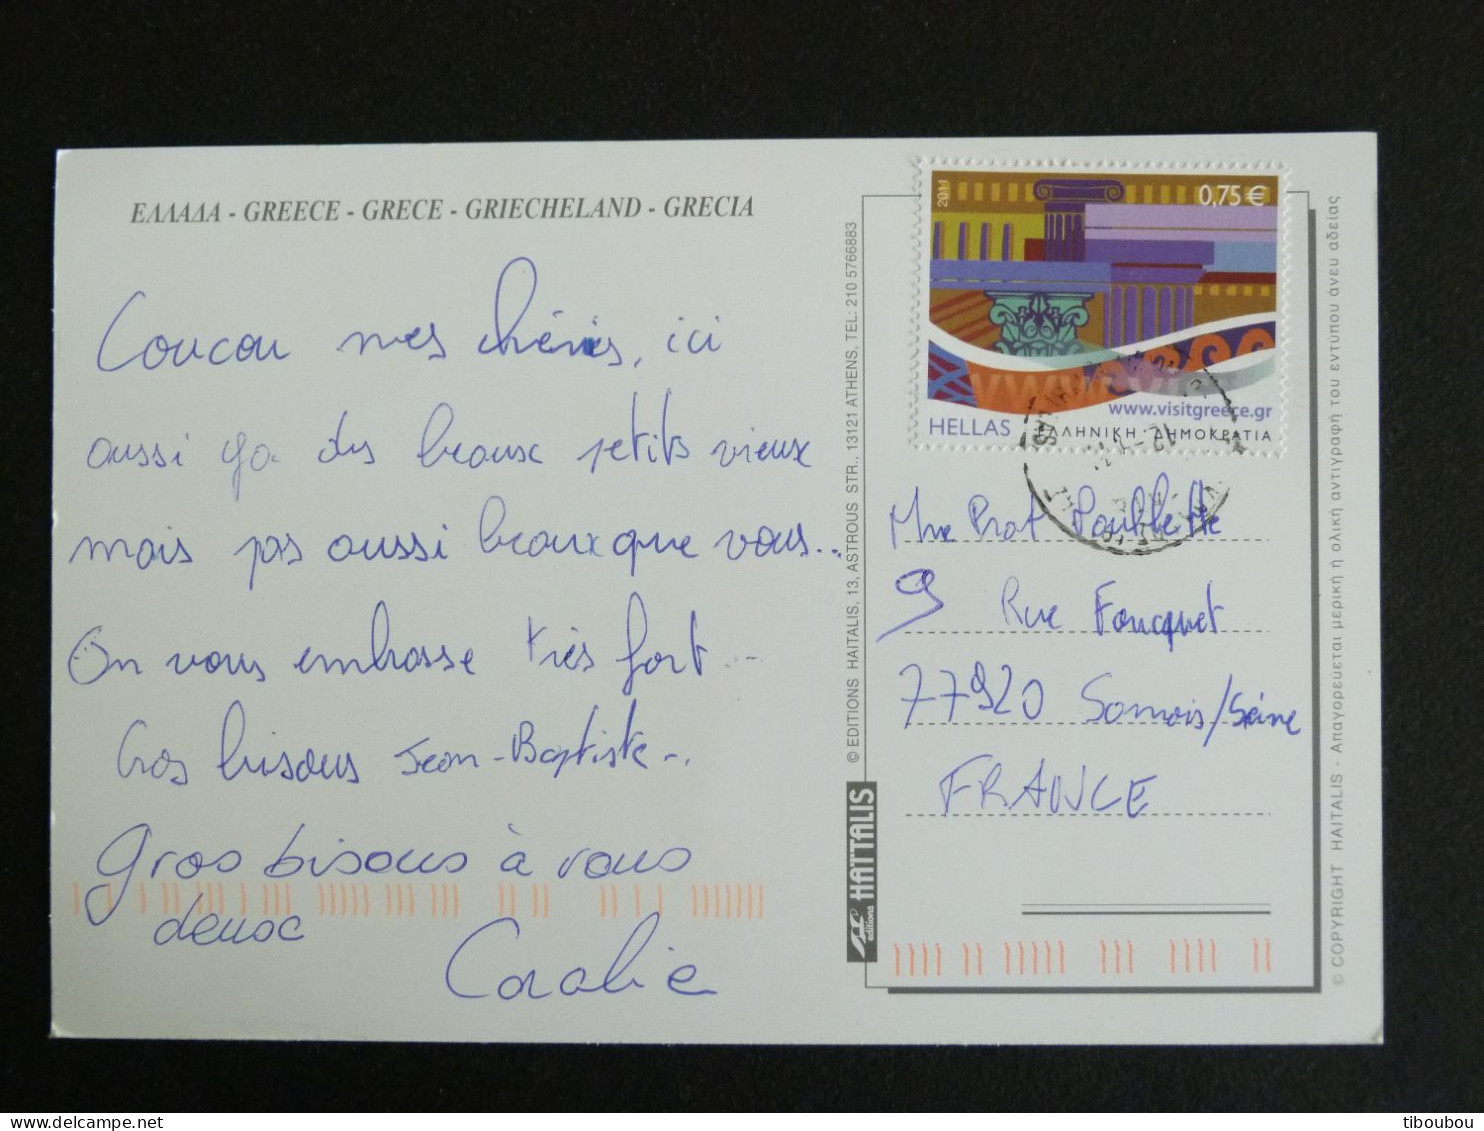 ΕΛΛΑΔΑ - GREECE - GRECE - GRIECHELAND - GRECIA
Coucou mes chéris, ici
aussi ya des beaux petits vieux
mais pas aussi beaux que vous...
On vous embrasse très fort...
Gros bisous Jean-Baptiste...
Gros bisous à vous
deux
Coralie
© EDITIONS HAITALIS, 13, ASTROUS STR., 13121 ATHENS, TEL: 210 5766883
editions HAÏTALIS
2011
0,75 €
www.visitgreece.gr
HELLAS ΕΛΛΗΝΙΚΗ ΔΗΜΟΚΡΑΤΙΑ
Mme Prat Paulette
9 Rue Foucquet
77920 Samois/Seine
FRANCE
© COPYRIGHT HAITALIS - Απαγορεύεται μερική ή ολική αντιγραφή του εντύπου άνευ αδείας
tiboubou